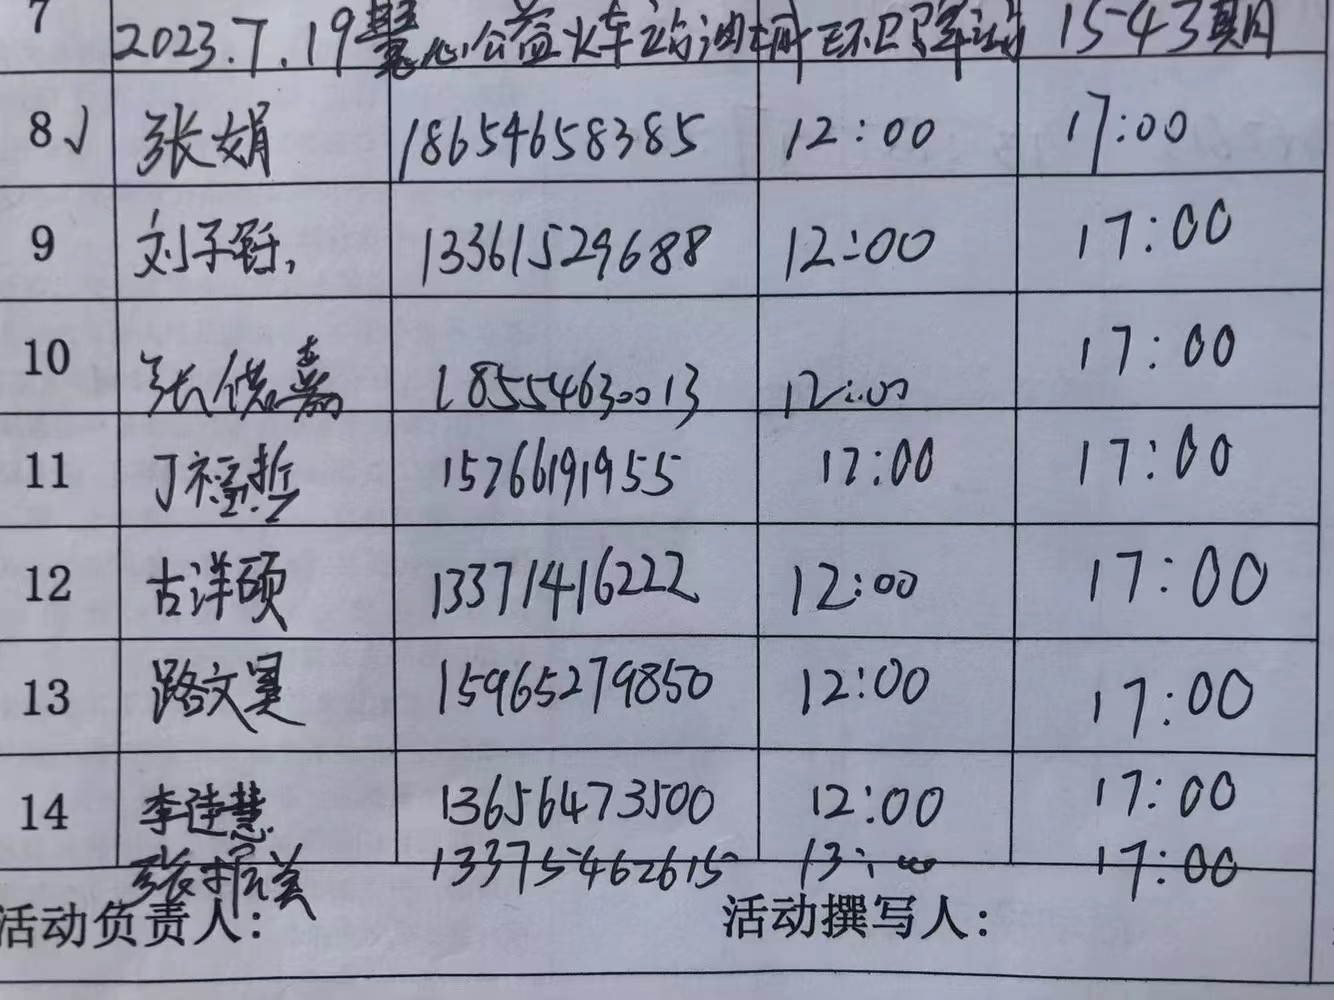 7 2023.7.19慧心公益火车站油城环卫驿站 1543期
8√ 张娟 18654658385 12:00 17:00
9 刘子钰 13361529688 12:00 17:00
10 张儒嘉 18554630013 12:00 17:00
11 丁福哲 15266191955 12:00 17:00
12 古洋硕 13371416222 12:00 17:00
13 路文昊 15965279850 12:00 17:00
14 李连慧 13656473500 12:00 17:00
张振兰 13375462615 13:00 17:00
活动负责人: 活动撰写人: